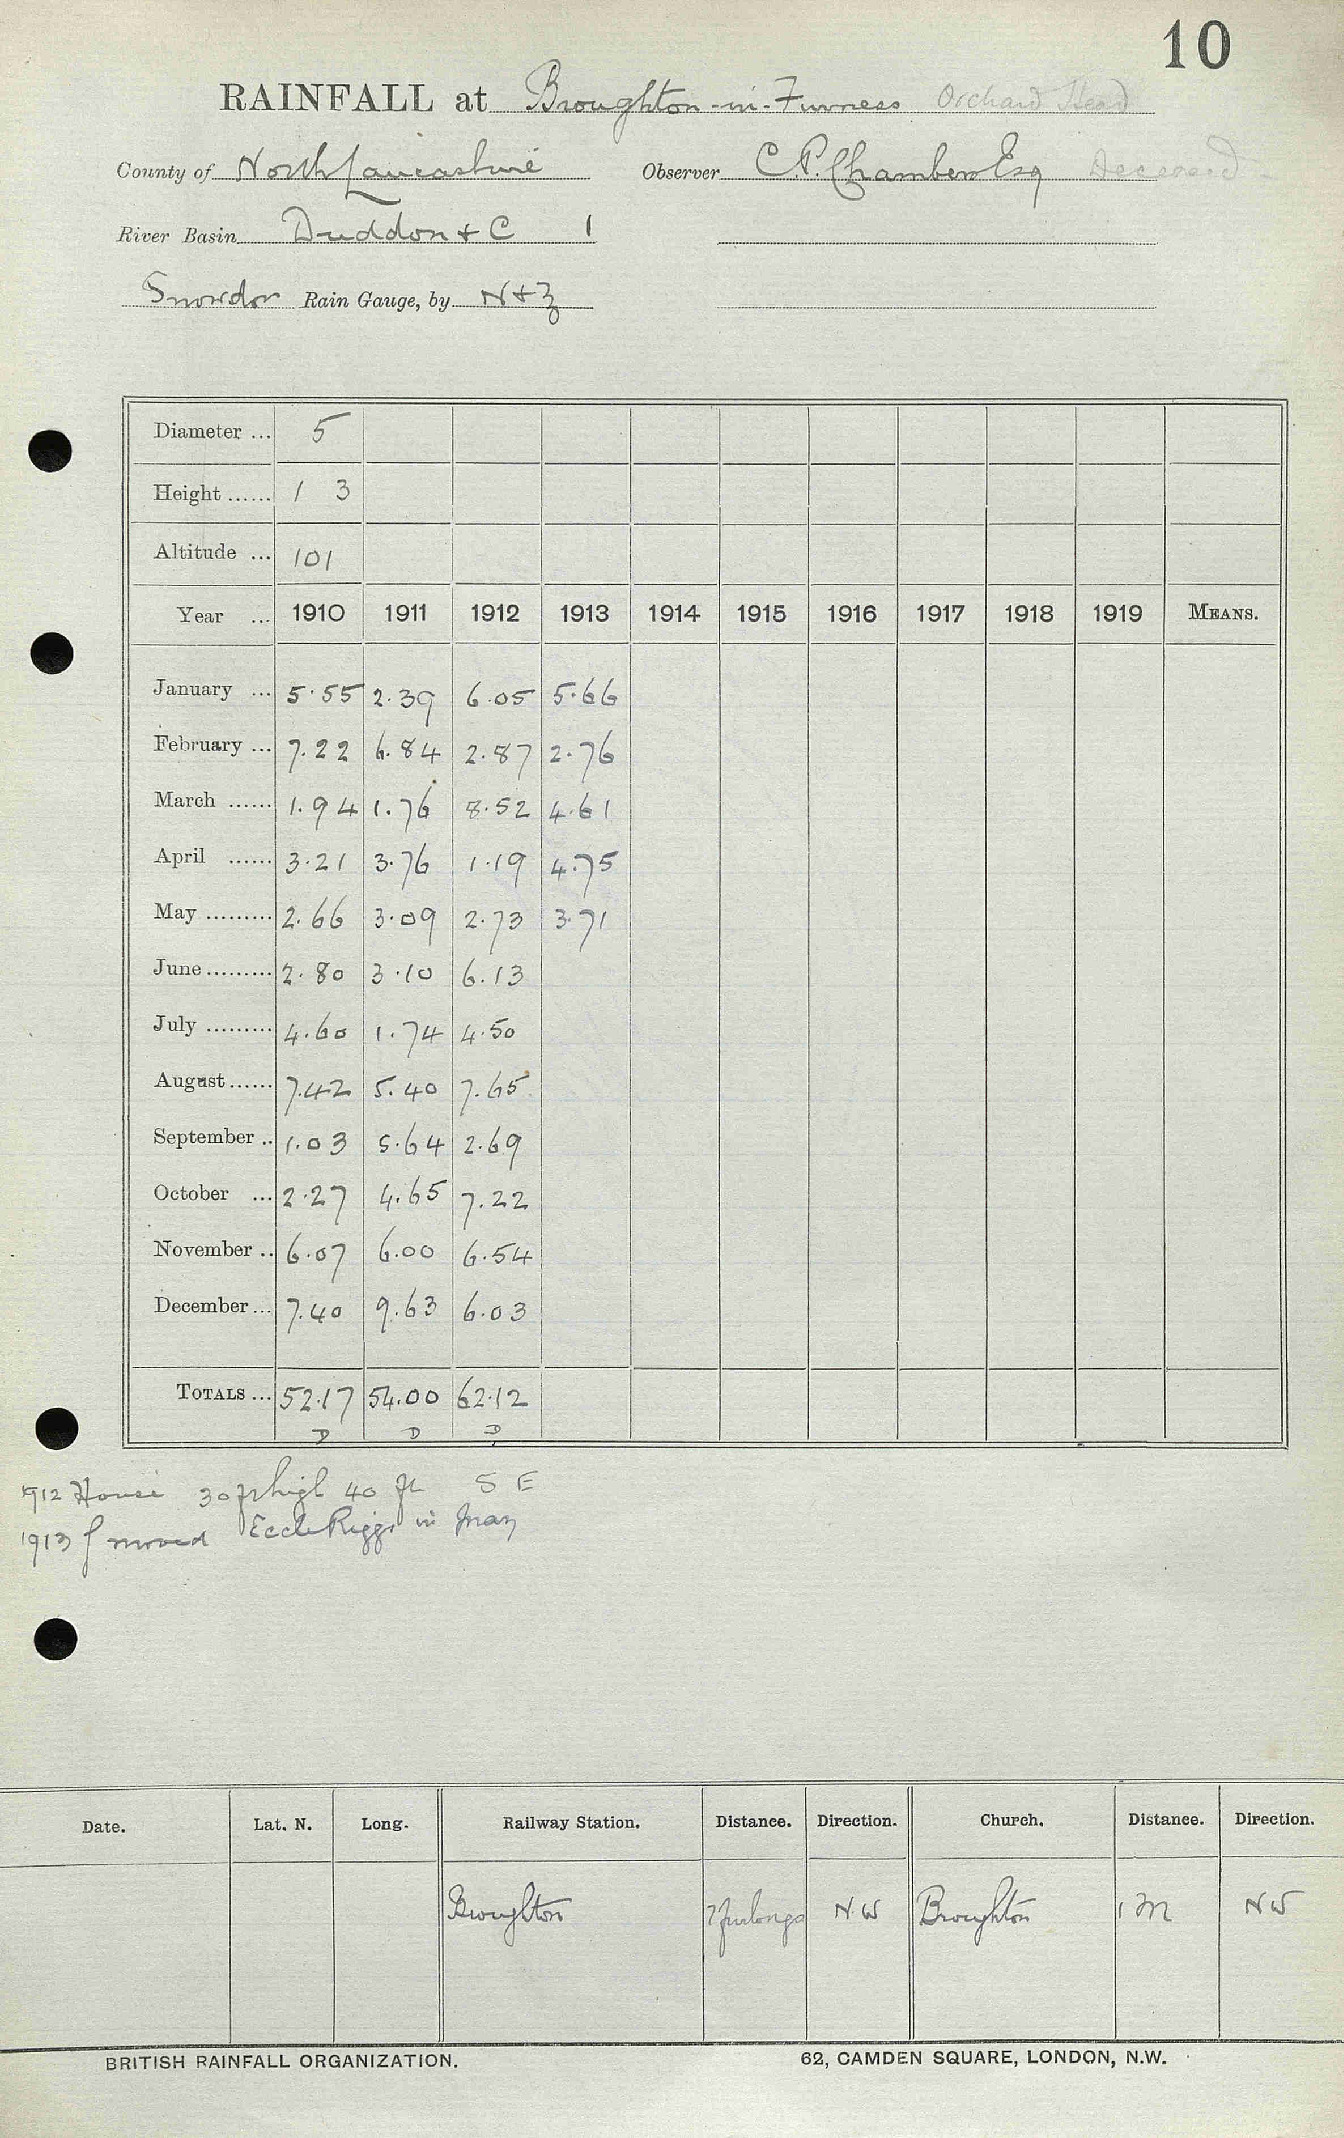 10
RAINFALL at Broughton-in-Furness Orchard Head
County of North Lancashire Observer C.P. Chambers Esq Deceased
River Basin Duddon & C 1
Snowdon Rain Gauge, by N & Z
Diameter ... 5
Height ...... 1 3
Altitude ... 101
Year ... 1910 1911 1912 1913 1914 1915 1916 1917 1918 1919 MEANS.
January ... 5.55 2.39 6.05 5.66
February ... 7.22 6.84 2.87 2.76
March ...... 1.94 1.76 8.52 4.61
April ...... 3.21 3.76 1.19 4.75
May ......... 2.66 3.09 2.73 3.71
June ......... 2.80 3.10 6.13
July ......... 4.60 1.74 4.50
August ...... 7.42 5.40 7.65
September .. 1.03 5.64 2.69
October ... 2.27 4.65 7.22
November .. 6.07 6.00 6.54
December ... 7.40 9.63 6.03
TOTALS ... 52.17 54.00 62.12
D D D
1912 House 30 ft high 40 ft S E
1913 g moved Eccle Riggs in May
Date. Lat. N. Long. Railway Station. Distance. Direction. Church. Distance. Direction.
Broughton 7 furlongs N.W Broughton 1 M N W
BRITISH RAINFALL ORGANIZATION. 62, CAMDEN SQUARE, LONDON, N.W.